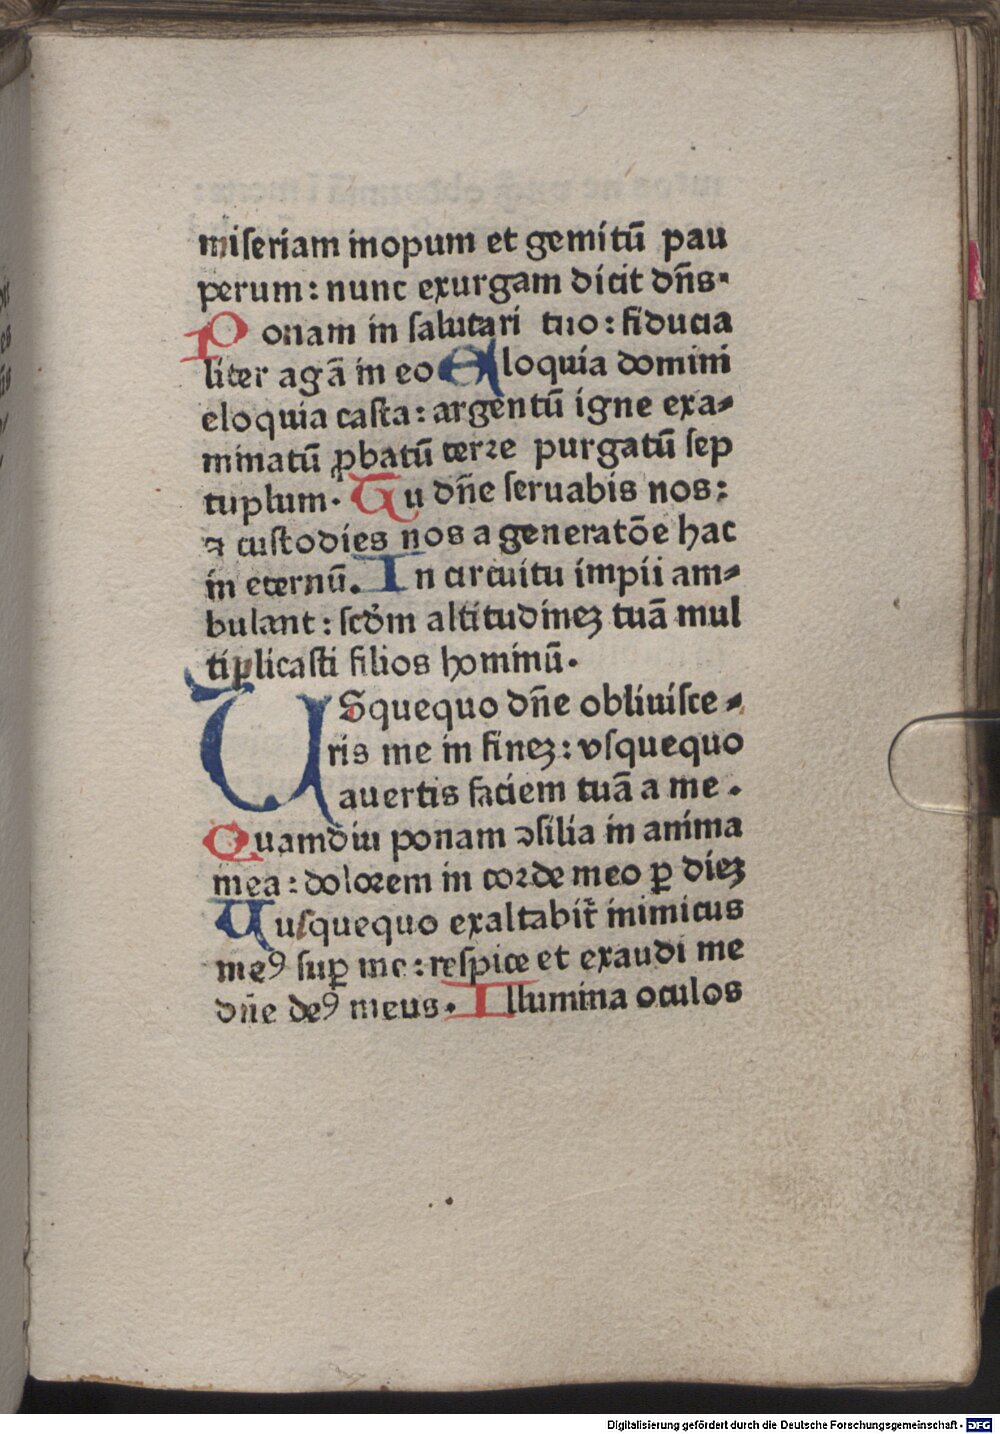 miſeriam inopum et gemitū pau
perum: nunc exurgam dicit dn̄s.
Ponam in ſalutari tuo: fiducia
liter agā in eo Eloquia domini
eloquia caſta: argentū igne exa⸗
minatū ꝓbatū terꝛe purgatū ſep
tuplum. Tu dn̄e ſeruabis nos:
⁊ cuſtodies nos a generatōe hac
in eternū. In circuitu impii am⸗
bulant: ſcd̓m altitudineꝫ tuā mul
tiplicaſti filios hominū.
USquequo dn̄e obliuiſce⸗
ris me in fineꝫ: vſquequo
auertis faciem tuā a me.
Quamdiu ponam ꝯſilia in anima
mea: doloꝛem in coꝛde meo ꝑ dieꝫ
Uuſquequo exaltabit̄ inimicus
meꝰ ſuꝑ me: reſpice et exaudi me
dn̄e deꝰ meus. Illumina oculos
Digitalisierung gefördert durch die Deutsche Forschungsgemeinschaft - DFG